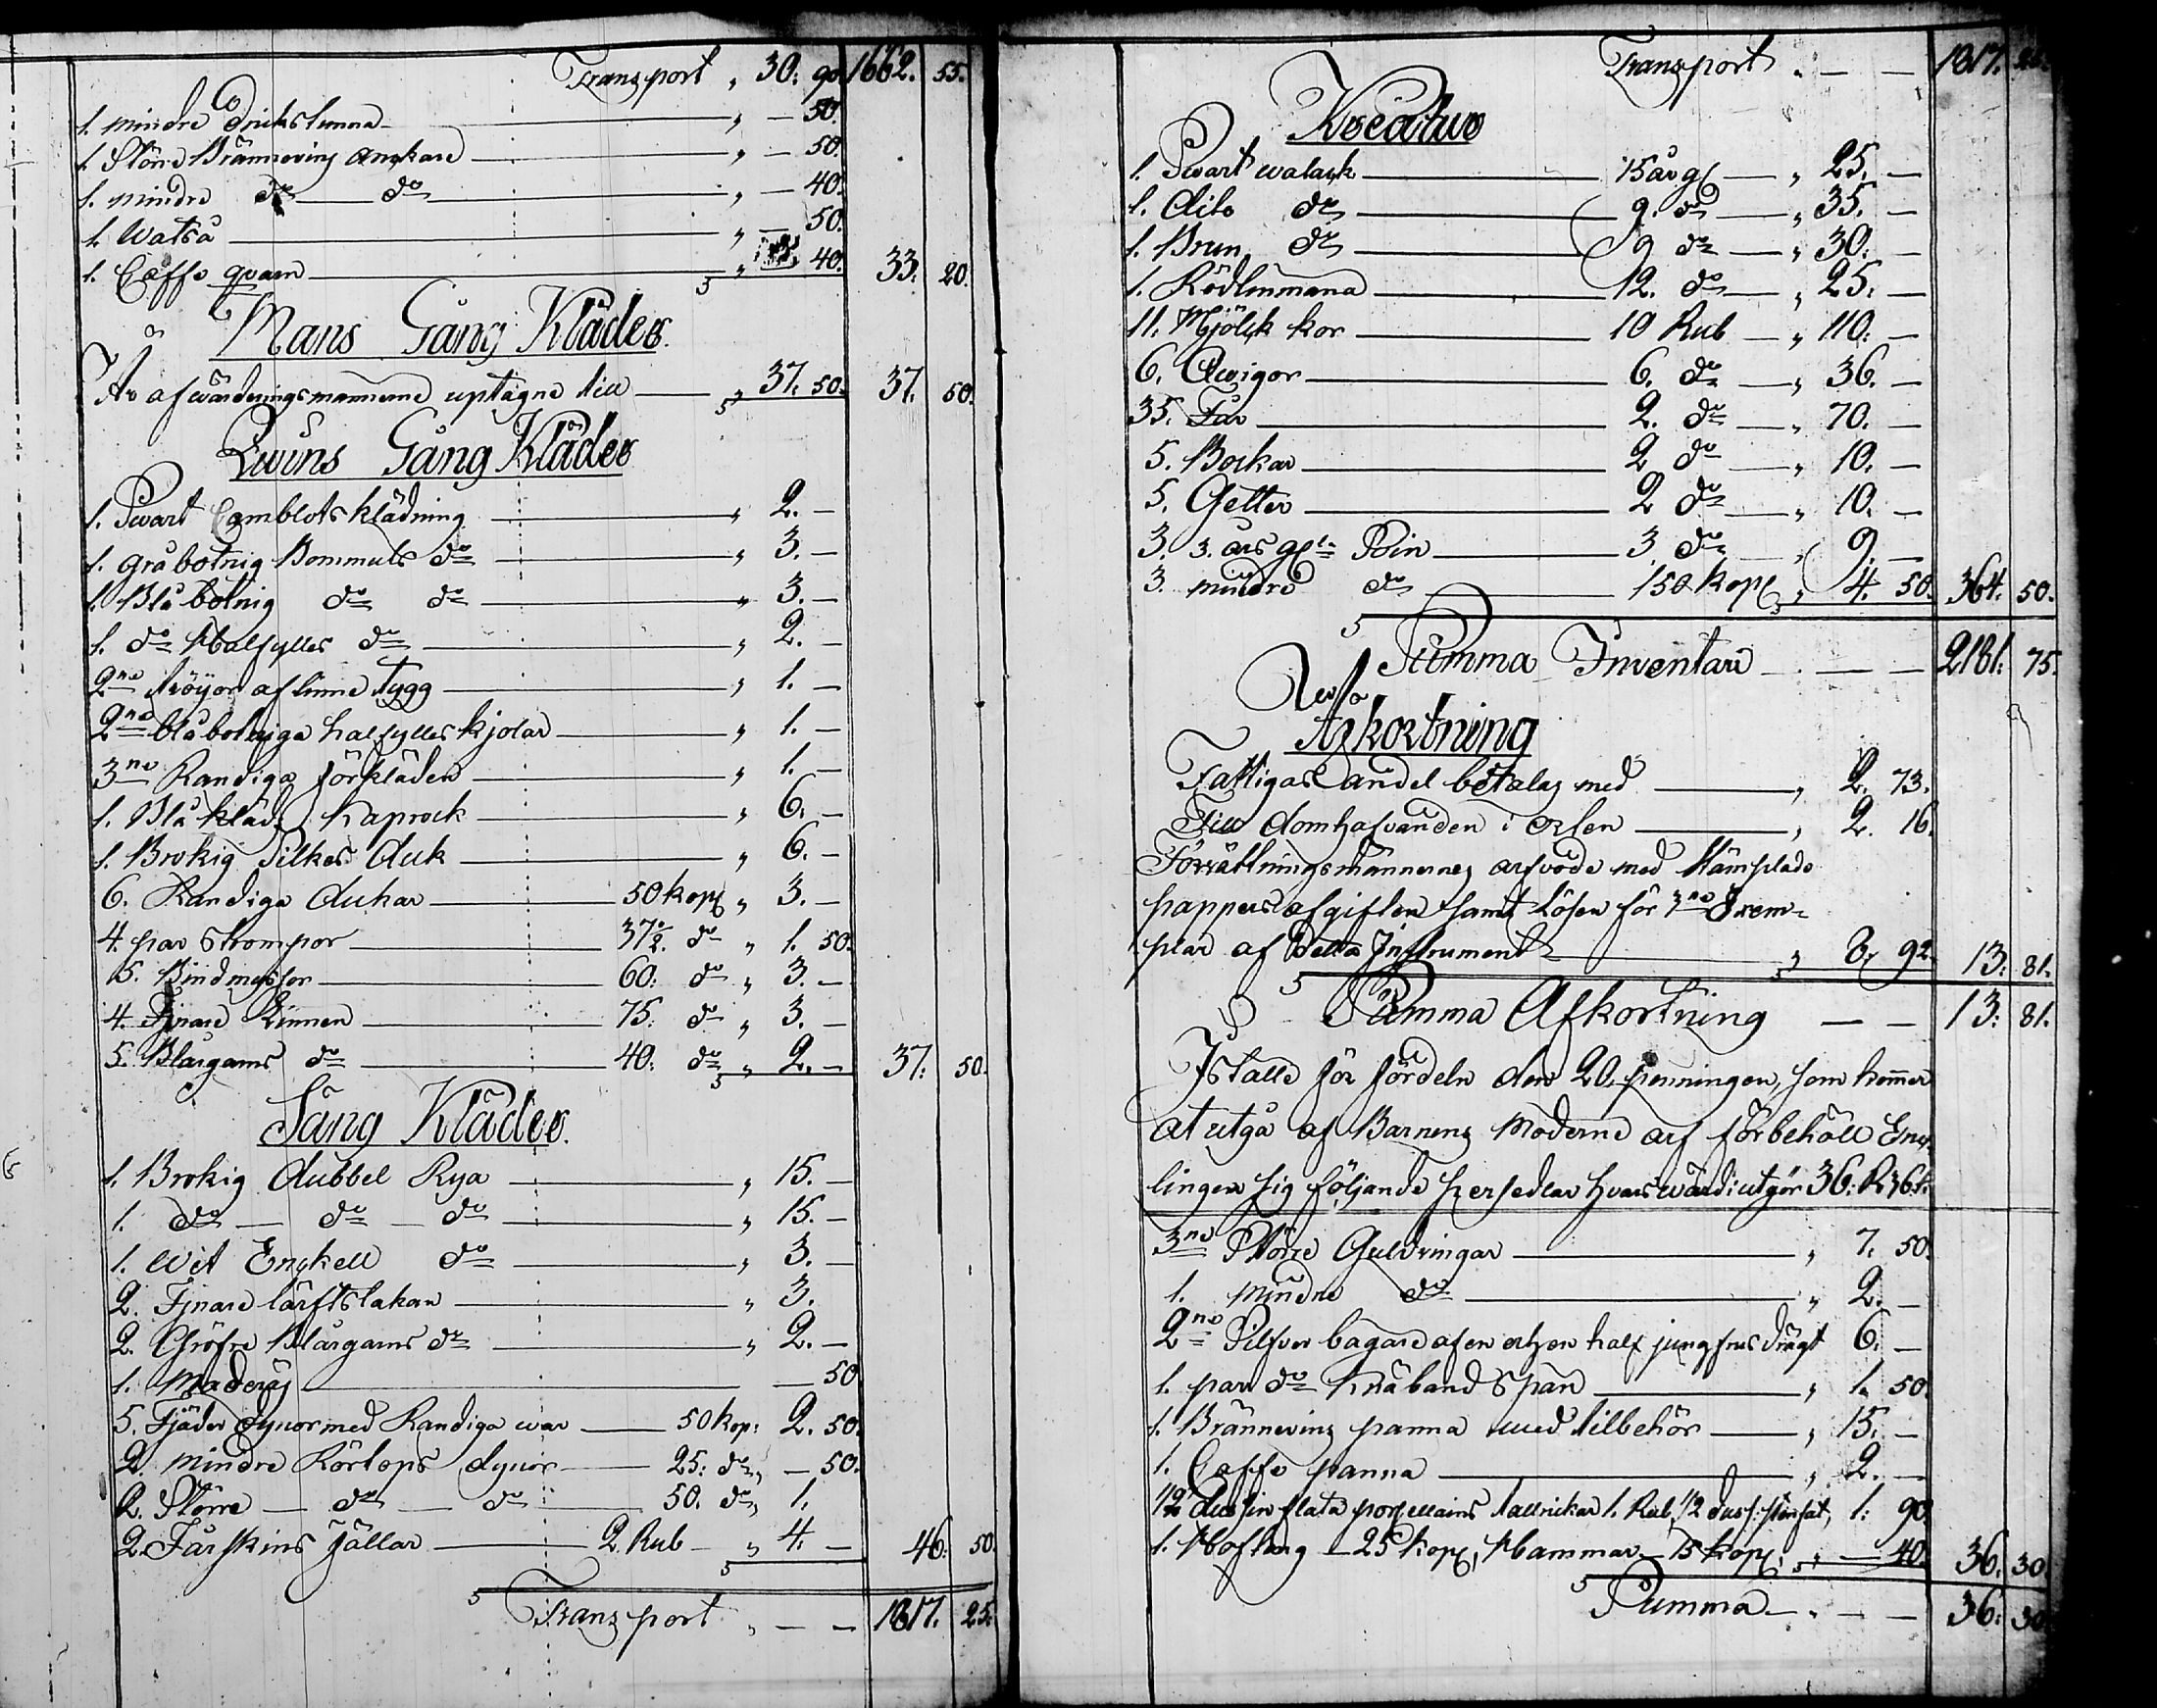 Transport " 30: 90. 1662. 55.
1. mindre Drickstunna " — 50.
1. Större Brännevins Anckare " — 50.
1. mindre do do " — 40.
1. Watså " — 50.
1. Caffe qvarn " 40. 33. 20.
Mans Gång Kläder.
Är af wärderingsmännerne uptagne till " 37. 50. 37. 50.
Qwins Gång Kläder
1. Swart Camblots klädning " 2. —
1. gråbotnig Bommuls do " 3. —
1. Blåbotnig do do " 3. —
1. do Halfylles do " 2. —
2ne tröijor af linne tygg " 1. —
2ne blåbotniga halfylles kjolar " 1. —
3ne Randiga förkläden " 1. —
1. Blå kläds kaprock " 6. —
1. Brokig Silkes duk " 6. —
6. Randiga dukar 50 kop " 3. —
4. par strompor 37½. do " 1. 50.
5. Bindmyssor 60: do " 3. —
4. Fjnare Linnen 75: do " 3. —
5. Blårgarns do 40: do " 2. — 37: 50.
Säng Kläder.
1. Brokig dubbel Rya " 15. —
1. do — do — do " 15. —
1. Wit Enckell do " 3. —
2. Fjnare lärftslakan " 3.
2. Gröfre Blårgarns do " 2. —
1. Maderas — 50
5. Fjäder dynor med Randiga war 50 kop: 2. 50.
2. mindre Rörtops dynor 25: do " — 50.
2. Större — do — do 50. do " 1.
2. Fårskins fällar 2. Rub — " 4. — 46: 50.
Transport " — — 1817. 25.
Transport . — — 1817. 25.
Kreatur
1. Swart walack 15 år gl — " 25. —
1. dito do 9. do — " 35. —
1. Brun do 9 do — " 30. —
1. Rödlinmana 12. do — " 25. —
11. Mjölck kor 10 Rub — " 110. —
6. Qwigor 6. do — " 36. —
35. Får 2. do — " 70. —
5. Bockar 2 do — " 10. —
5. Getter 2 do — " 10. —
3. 3. års gl Svin 3 do — " 9. —
3. mindre do 150 kop " 4. 50. 364. 50.
Summa Inventari — — 2181: 75.
Afkortning
Fattigas andel betalas med " 2. 73.
Till domhafvanden i Orlen " 2. 16.
Förrättningsmännernes arfvode med Stämplade
pappers afgiften samt Lösen för 3ne Exem-
plar af detta Instrument " 8, 92. 13: 81.
Summa Afkortning — — 13: 81.
I stället för fördeln den 20. penningen, som kommer
at utgå af Barnens Moderne arf förbehåll Enck
lingen sig följande persedlar hvars wärdi utgör 36: R
3ne Större Guldringar " 7. 50.
1. mindre do " 2. —
2ne Silfver bägare af en och en half jungfrus drägt 6. —
1. par do knäband Spän " 1. 50.
1. Brännevins panna med tilbehör " 15. —
1. Caffe panna " 2. —
1/2 dussin flata porsellains Tallrickar 1. Rub, 1/2 duss: stenfat, 1: 90.
1. Hoftång — 25 kop, Hammar — 15 kop, — 40. 36. 30.
Summa — . — — 36: 30.